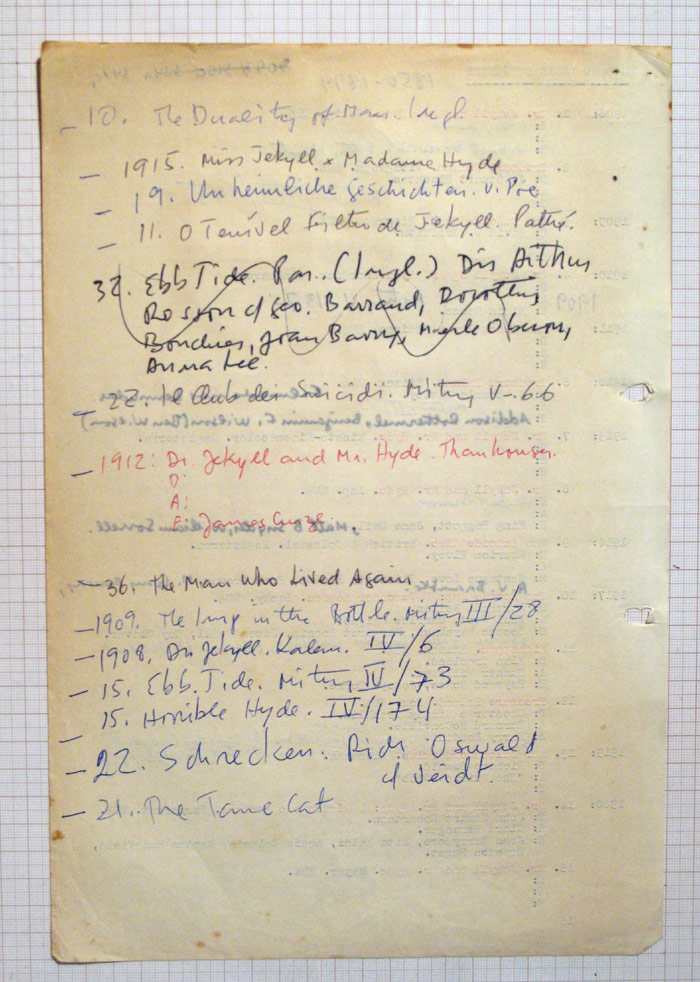 – 10. The Duality of Man. Ingl.
– 1915. Miss Jekyll x Madame Hyde
– 19. Unheimliche Geschichten. v. Poe
– 11. O Terrível Filtro de Jekyll. Pathé.
32. Ebb Tide. Par.. (Ingl.) Dir Arthur
Rosson c/ Geo. Barraud, Dorothy
Bouchier, Joan Barry, Merle Oberon,
Anna Lee.
– 22. Il Club dei Suicidi. Mitry V-66
– 1912: Dr. Jekyll and Mr. Hyde. Thanhouser.
D:
A:
E: James Cruze
– 36. The Man Who Lived Again
– 1909. The Imp in the Bottle. Mitry III/28
– 1908. Dr. Jekyll. Kalem. IV/6
– 15. Ebb. Tide. Mitry IV/73
– 15. Horrible Hyde. IV/174
– 22. Schrecken. Rich Oswald
c/ Veidt.
– 21. The Tame Cat